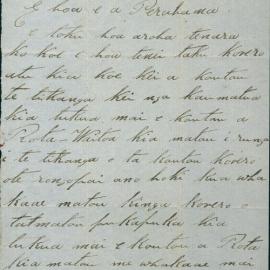 E hoa e a Perahama
E toku hoa aroha tenara
ko koe e hou tenei taku korero
atu kia koe kei a koutou
te tikanga kei nga kaumatua
kia tukua mai e koutou a
Rota Waitoa kia matou i runga
i te tikanga o ta koutou korero
ote rongopai ano hoki kua wha
kaae matou kinga korero o
tatmatou pukapuka kia
tukua mai e koutou a Rota
kia matou me whakaae mai